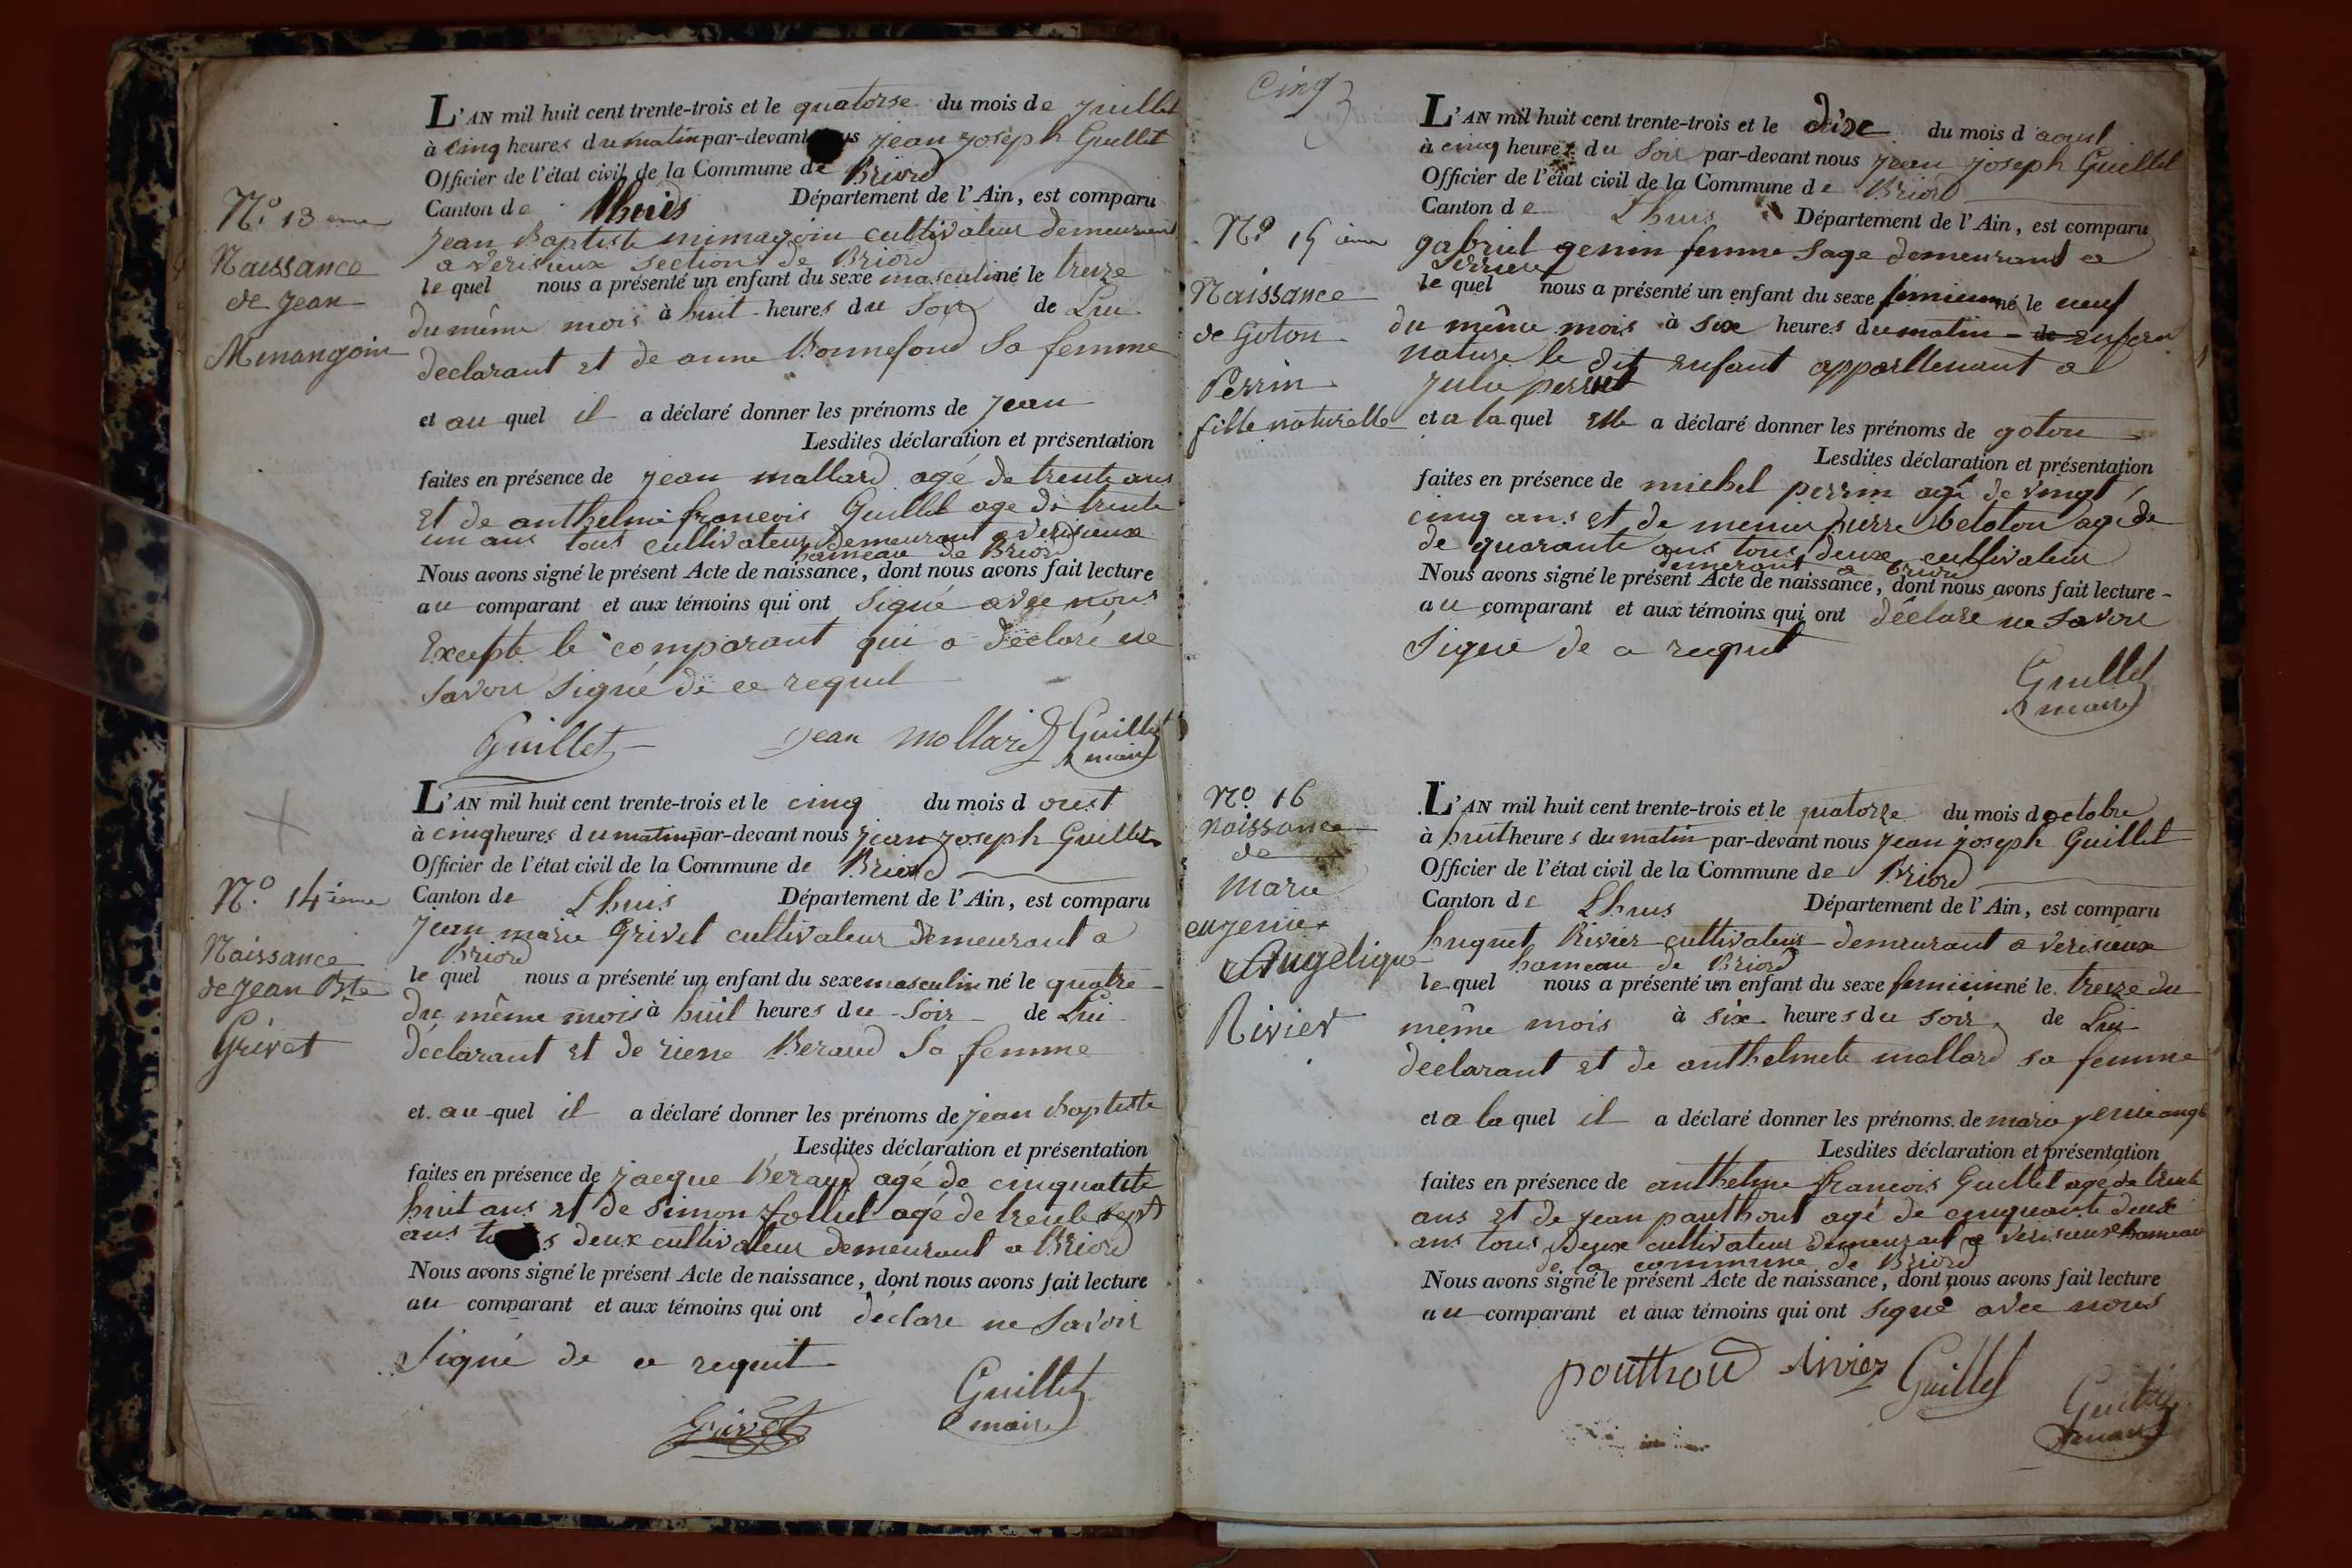 L'AN mil huit cent trente-trois et le quatorse du mois de juillet
à cinq heures du matin par-devant jean joseph Guillet
Officier de l'état civil de la Commune de Briord
Canton de Lhuis Département de l'Ain, est comparu
N.º 13 eme
Naissance
de jean
Minangoin
jean Baptiste mimagoin cultivateur demeurant
a verisieux section de Briord
le quel nous a présenté un enfant du sexe masculin né le treize
du même mois à huit heures du Soir de Lui
declarant et de anne Bonnefond Sa femme
et au quel il a déclaré donner les prénoms de jean
Lesdites déclaration et présentation
faites en présence de jean mallard agé de trente ans
et de anthelme francois Guillet age de trente
un ans tous cultivateur demeurant a verisieux
hameau de Briord
Nous avons signé le présent Acte de naissance, dont nous avons fait lecture
au comparant et aux témoins qui ont Signé avec nous
Excepte le comparant qui a déclaré ne
savoir Signé de ce requit
Guillet jean mollard Guillet
maire
L'AN mil huit cent trente-trois et le cinq du mois d oust
à cinq heures du matin par-devant nous jean joseph Guillet
Officier de l'état civil de la Commune de Briord
Canton de Lhuis Département de l'Ain, est comparu
N.º 14 ieme
Naissance
de jean Bte
Grivet
jean marie Grivet cultivateur demeurant a
Briord
le quel nous a présenté un enfant du sexe masculin né le quatre
du même mois à huit heures du Soir de Lui
déclarant et de Beraud Sa femme
et au quel il a déclaré donner les prénoms de jean Baptiste
Lesdites déclaration et présentation
faites en présence de jacque Beraud agé de cinquante
huit ans et de Simon follict agé de trente sept
ans deux cultivateur demeurant a Briord
Nous avons signé le présent Acte de naissance, dont nous avons fait lecture
au comparant et aux témoins qui ont déclare ne Savoir
Signé de ce requit
Grivet Guillet
maire
cinq
L'AN mil huit cent trente-trois et le dixe du mois d'aoust
à cinq heures du Soir par-devant nous jean joseph Guillet
Officier de l'état civil de la Commune de Briord
Canton de Lhuis Département de l'Ain, est comparu
N.º 15 ieme
Naissance
de Goton
Perrin
fille naturelle
gabriel genin femme Sage demeurant a
le quel nous a présenté un enfant du sexe né le neuf
du même mois à Six heures du matin de
nature le dit enfant apparttenant a
julie
et a la quel elle a déclaré donner les prénoms de goton
Lesdites déclaration et présentation
faites en présence de michel perrin agé de vingt
cinq ans et de pierre agé de
de quarante ans tous deux cultivateur
demerant a Briord
Nous avons signé le présent Acte de naissance, dont nous avons fait lecture
au comparant et aux témoins qui ont déclaré ne Savoir
Signé de ce requit
Guillet
maire
Nº 16
Naissance
de
marie
eugenie
Angelique
Rivier
L'AN mil huit cent trente-trois et le quatorze du mois d octobre
à huit heures du matin par-devant nous jean joseph Guillet
Officier de l'état civil de la Commune de Briord
Canton de Lhuis Département de l'Ain, est comparu
huguet Rivier cultivateur demeurant a verisieux
hameau de Briord
le quel nous a présenté un enfant du sexe feminin né le treize du
même mois à six heures du soir de Lui
declarant et de anthelmete mollard sa femme
et a la quel il a déclaré donner les prénoms de marie
Lesdites déclaration et présentation
faites en présence de anthelme francois Guillet agé de trente
ans et de jean panthout agé de cinquante deux
ans tous deux cultivateur demeurant a verisieux hameau
de la commune de Briord
Nous avons signé le présent Acte de naissance, dont nous avons fait lecture
au comparant et aux témoins qui ont signé avec nous
pouthoud Rivier Guillet Guillet
maire